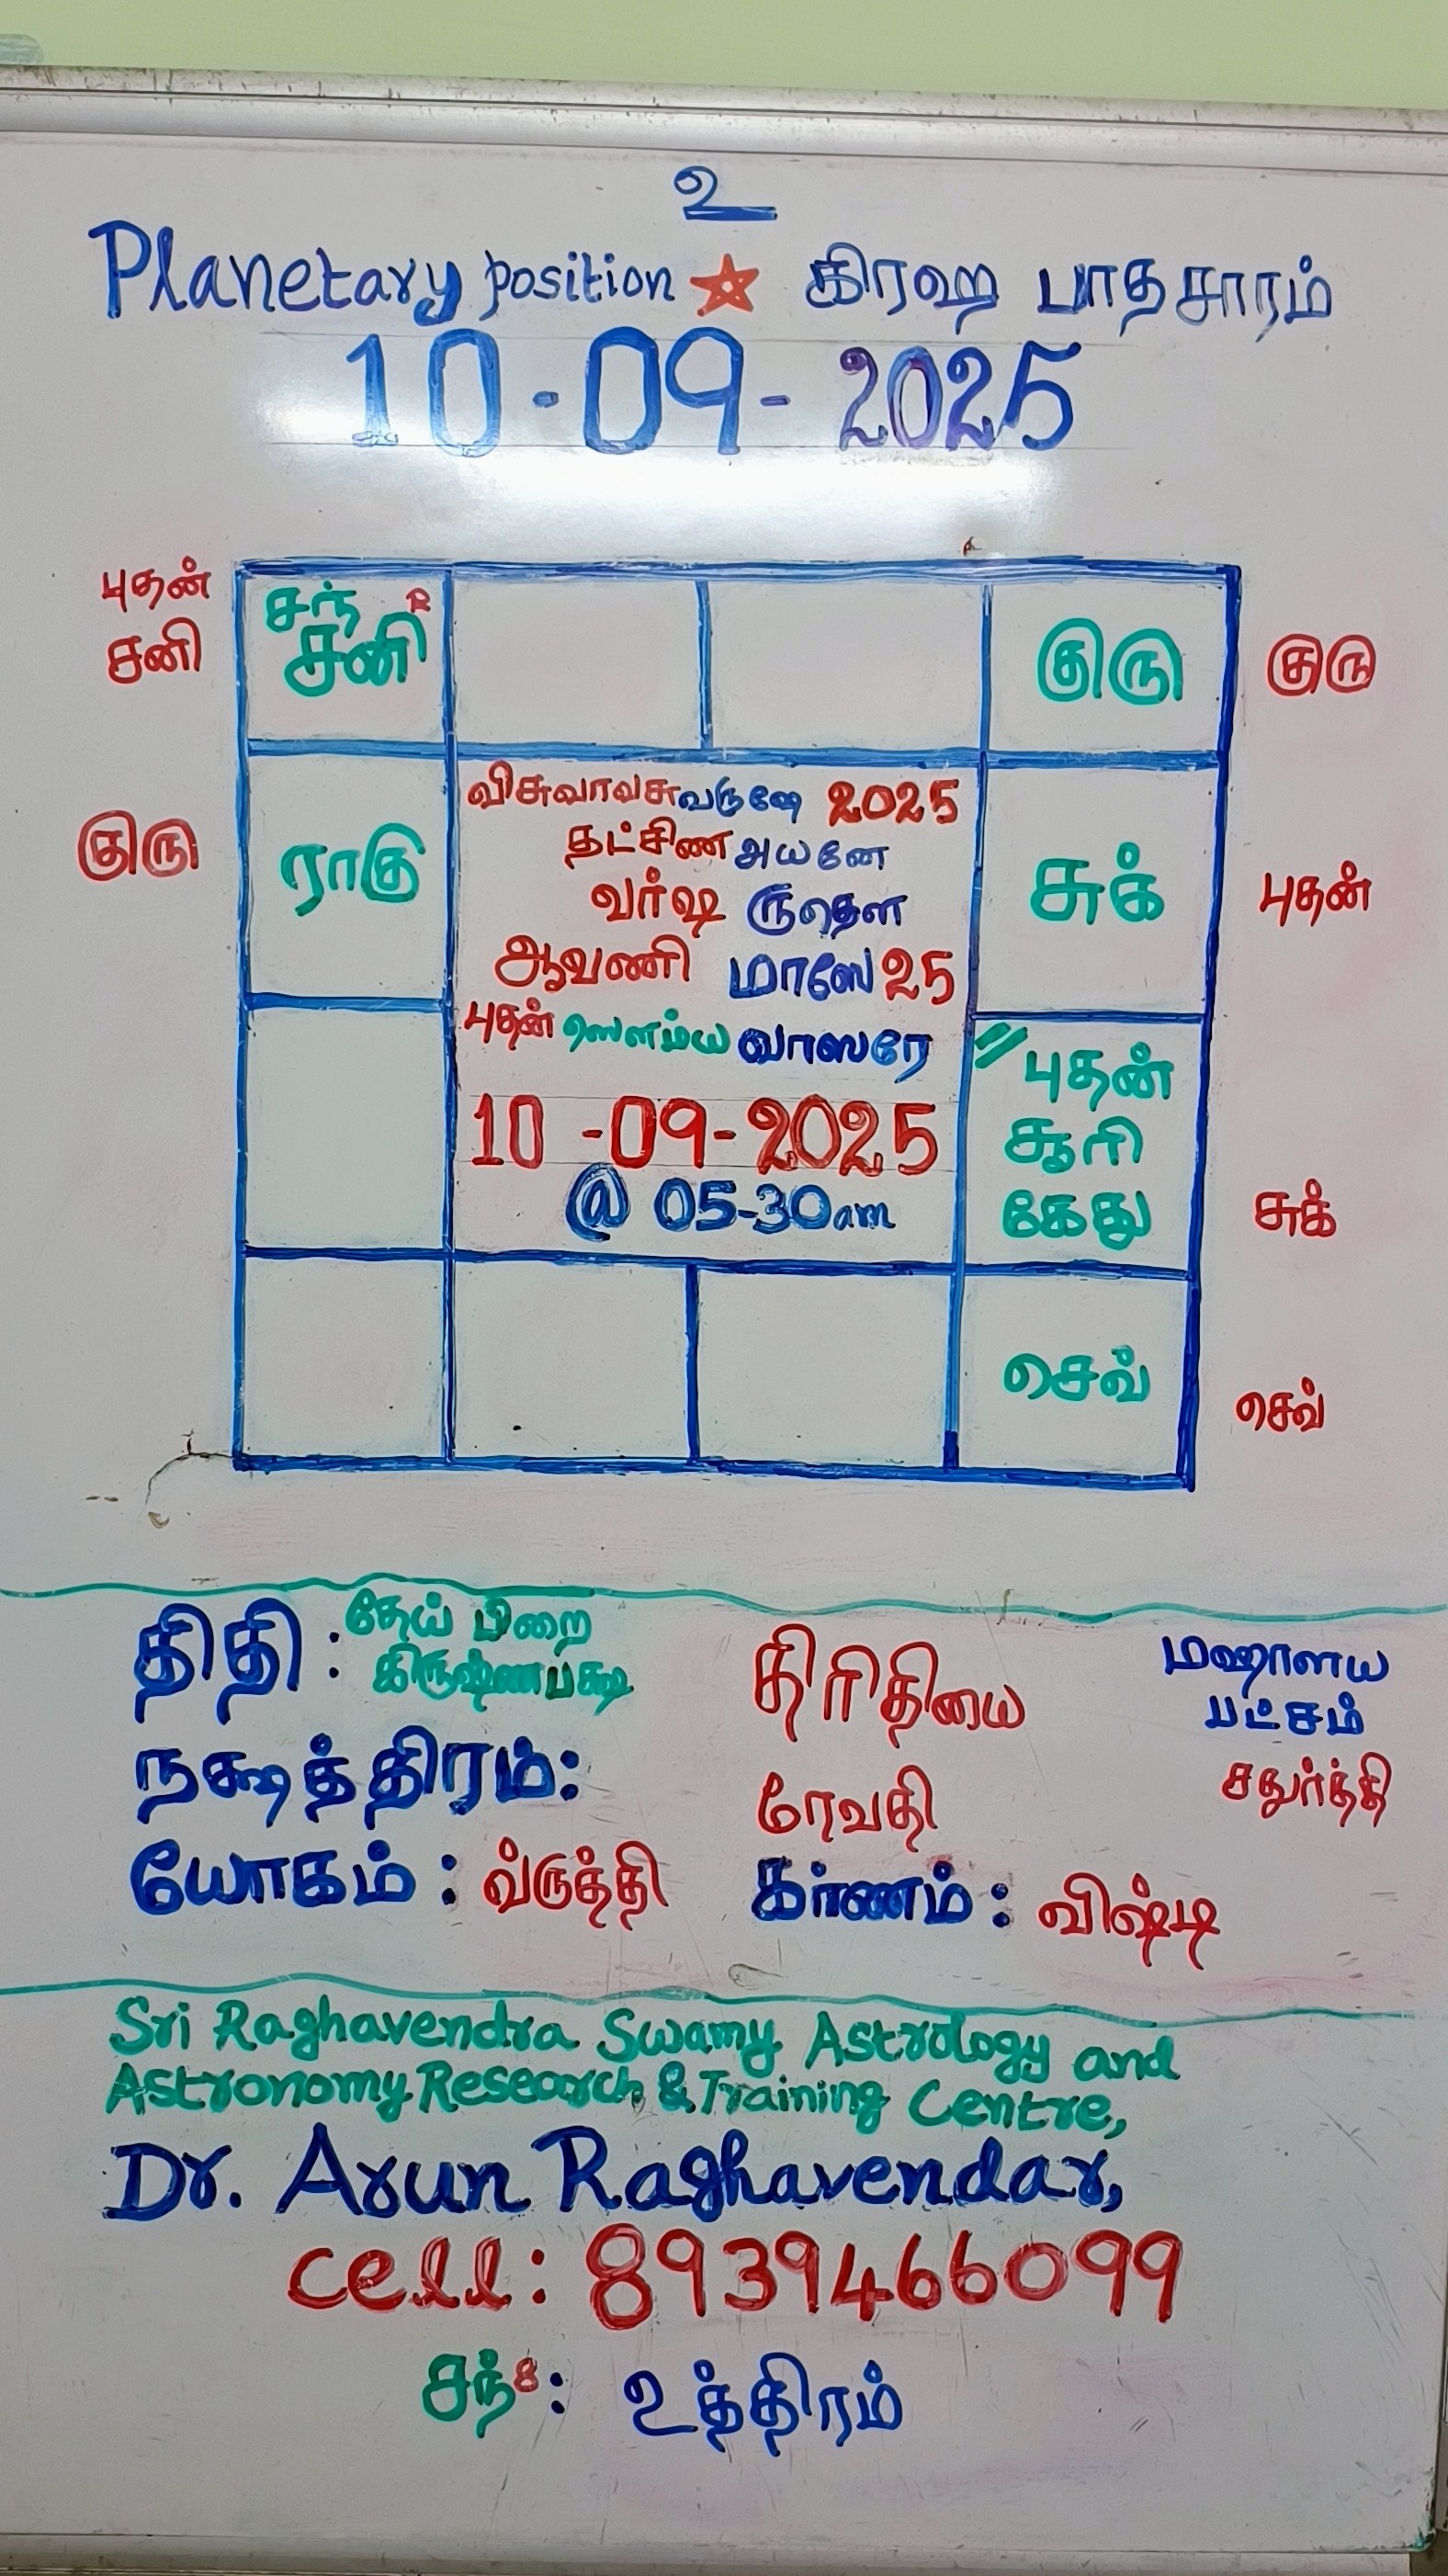 உ
Planetary position ☆ கிரஹ பாதசாரம்
10-09-2025
புதன்
சனி
சந்
சனி R
குரு
குரு
குரு
ராகு
விசுவாவசு வருஷே 2025
தட்சிண அயனே
வர்ஷ ருதௌ
ஆவணி மாஸே 25
புதன் ஸௌம்ய வாஸரே
10-09-2025
@ 05-30am
சுக்
புதன்
புதன்
சூரி
கேது
சுக்
செவ்
செவ்
திதி : தேய் பிறை
கிருஷ்ணபக்ஷ
திரிதியை
மஹாளய
பட்சம்
சதுர்த்தி
நக்ஷத்திரம்: ரேவதி
யோகம் : வ்ருத்தி கர்ணம் : விஷ்டி
Sri Raghavendra Swamy Astrology and
Astronomy Research & Training Centre,
Dr. Arun Raghavendar,
cell: 8939466099
சந் 8 : உத்திரம்